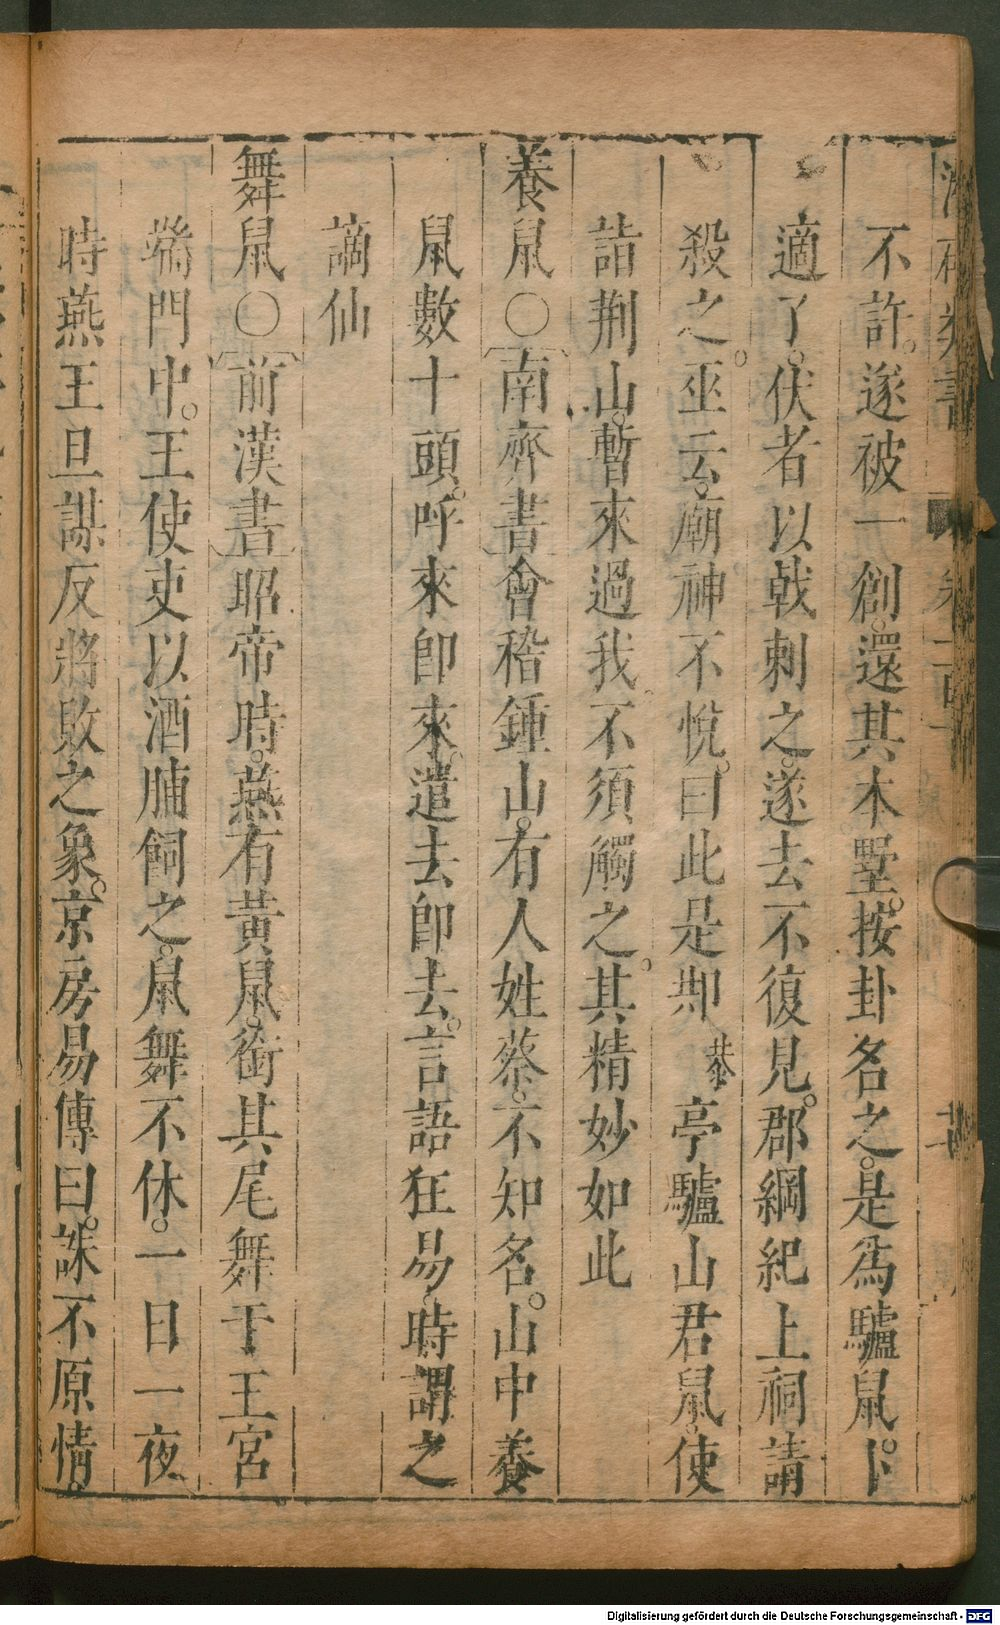 不許。遂被一創。還其本墅。按卦名之。是爲驢鼠。卜
適了。伏者以戟刺之。遂去不復見。郡綱紀上祠請
殺之。巫云。廟神不悅。曰此是䢼 恭 亭驢山君鼠。使
詣荆山。暫來過我。不須觸之。其精妙如此
養鼠○南齊書會稽鍾山。有人姓蔡。不知名。山中養
鼠數十頭。呼來卽來。遣去卽去。言語狂易。時謂之
謫仙
舞鼠○前漢書昭帝時。燕有黃鼠。銜其尾舞于王宮
端門中。王使吏以酒脯飼之。鼠舞不休。一日一夜
時燕王旦謀反將敗之象。京房易傳曰。誅不原情。
Digitalisierung gefördert durch die Deutsche Forschungsgemeinschaft - DFG